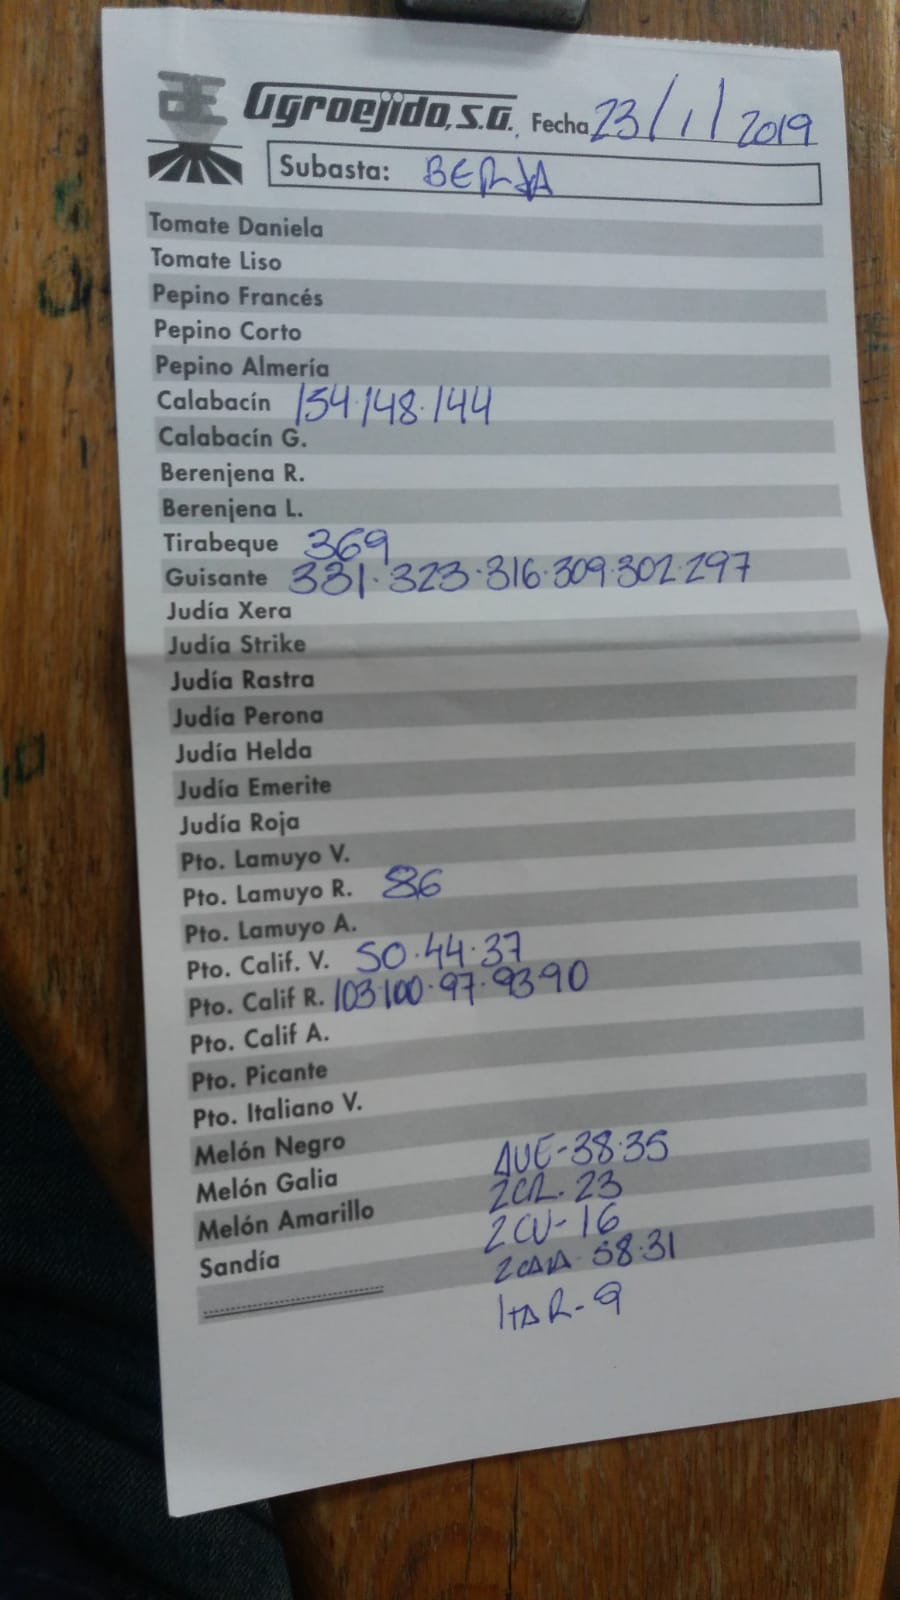 Agroejido, S.A. Fecha 23/1/2019
Subasta: BERJA
Tomate Daniela
Tomate Liso
Pepino Francés
Pepino Corto
Pepino Almería
Calabacín 154·148·144
Calabacín G.
Berenjena R.
Berenjena L.
Tirabeque 369
Guisante 331·323·316·309·302·297
Judía Xera
Judía Strike
Judía Rastra
Judía Perona
Judía Helda
Judía Emerite
Judía Roja
Pto. Lamuyo V.
Pto. Lamuyo R. 86
Pto. Lamuyo A.
Pto. Calif. V. 50·44·37
Pto. Calif R. 103·100·97·93·90
Pto. Calif A.
Pto. Picante
Pto. Italiano V.
Melón Negro
Melón Galia AUE-38·35
Melón Amarillo 2CR-23
Sandía 2CU-16
58·31
1tAR-9